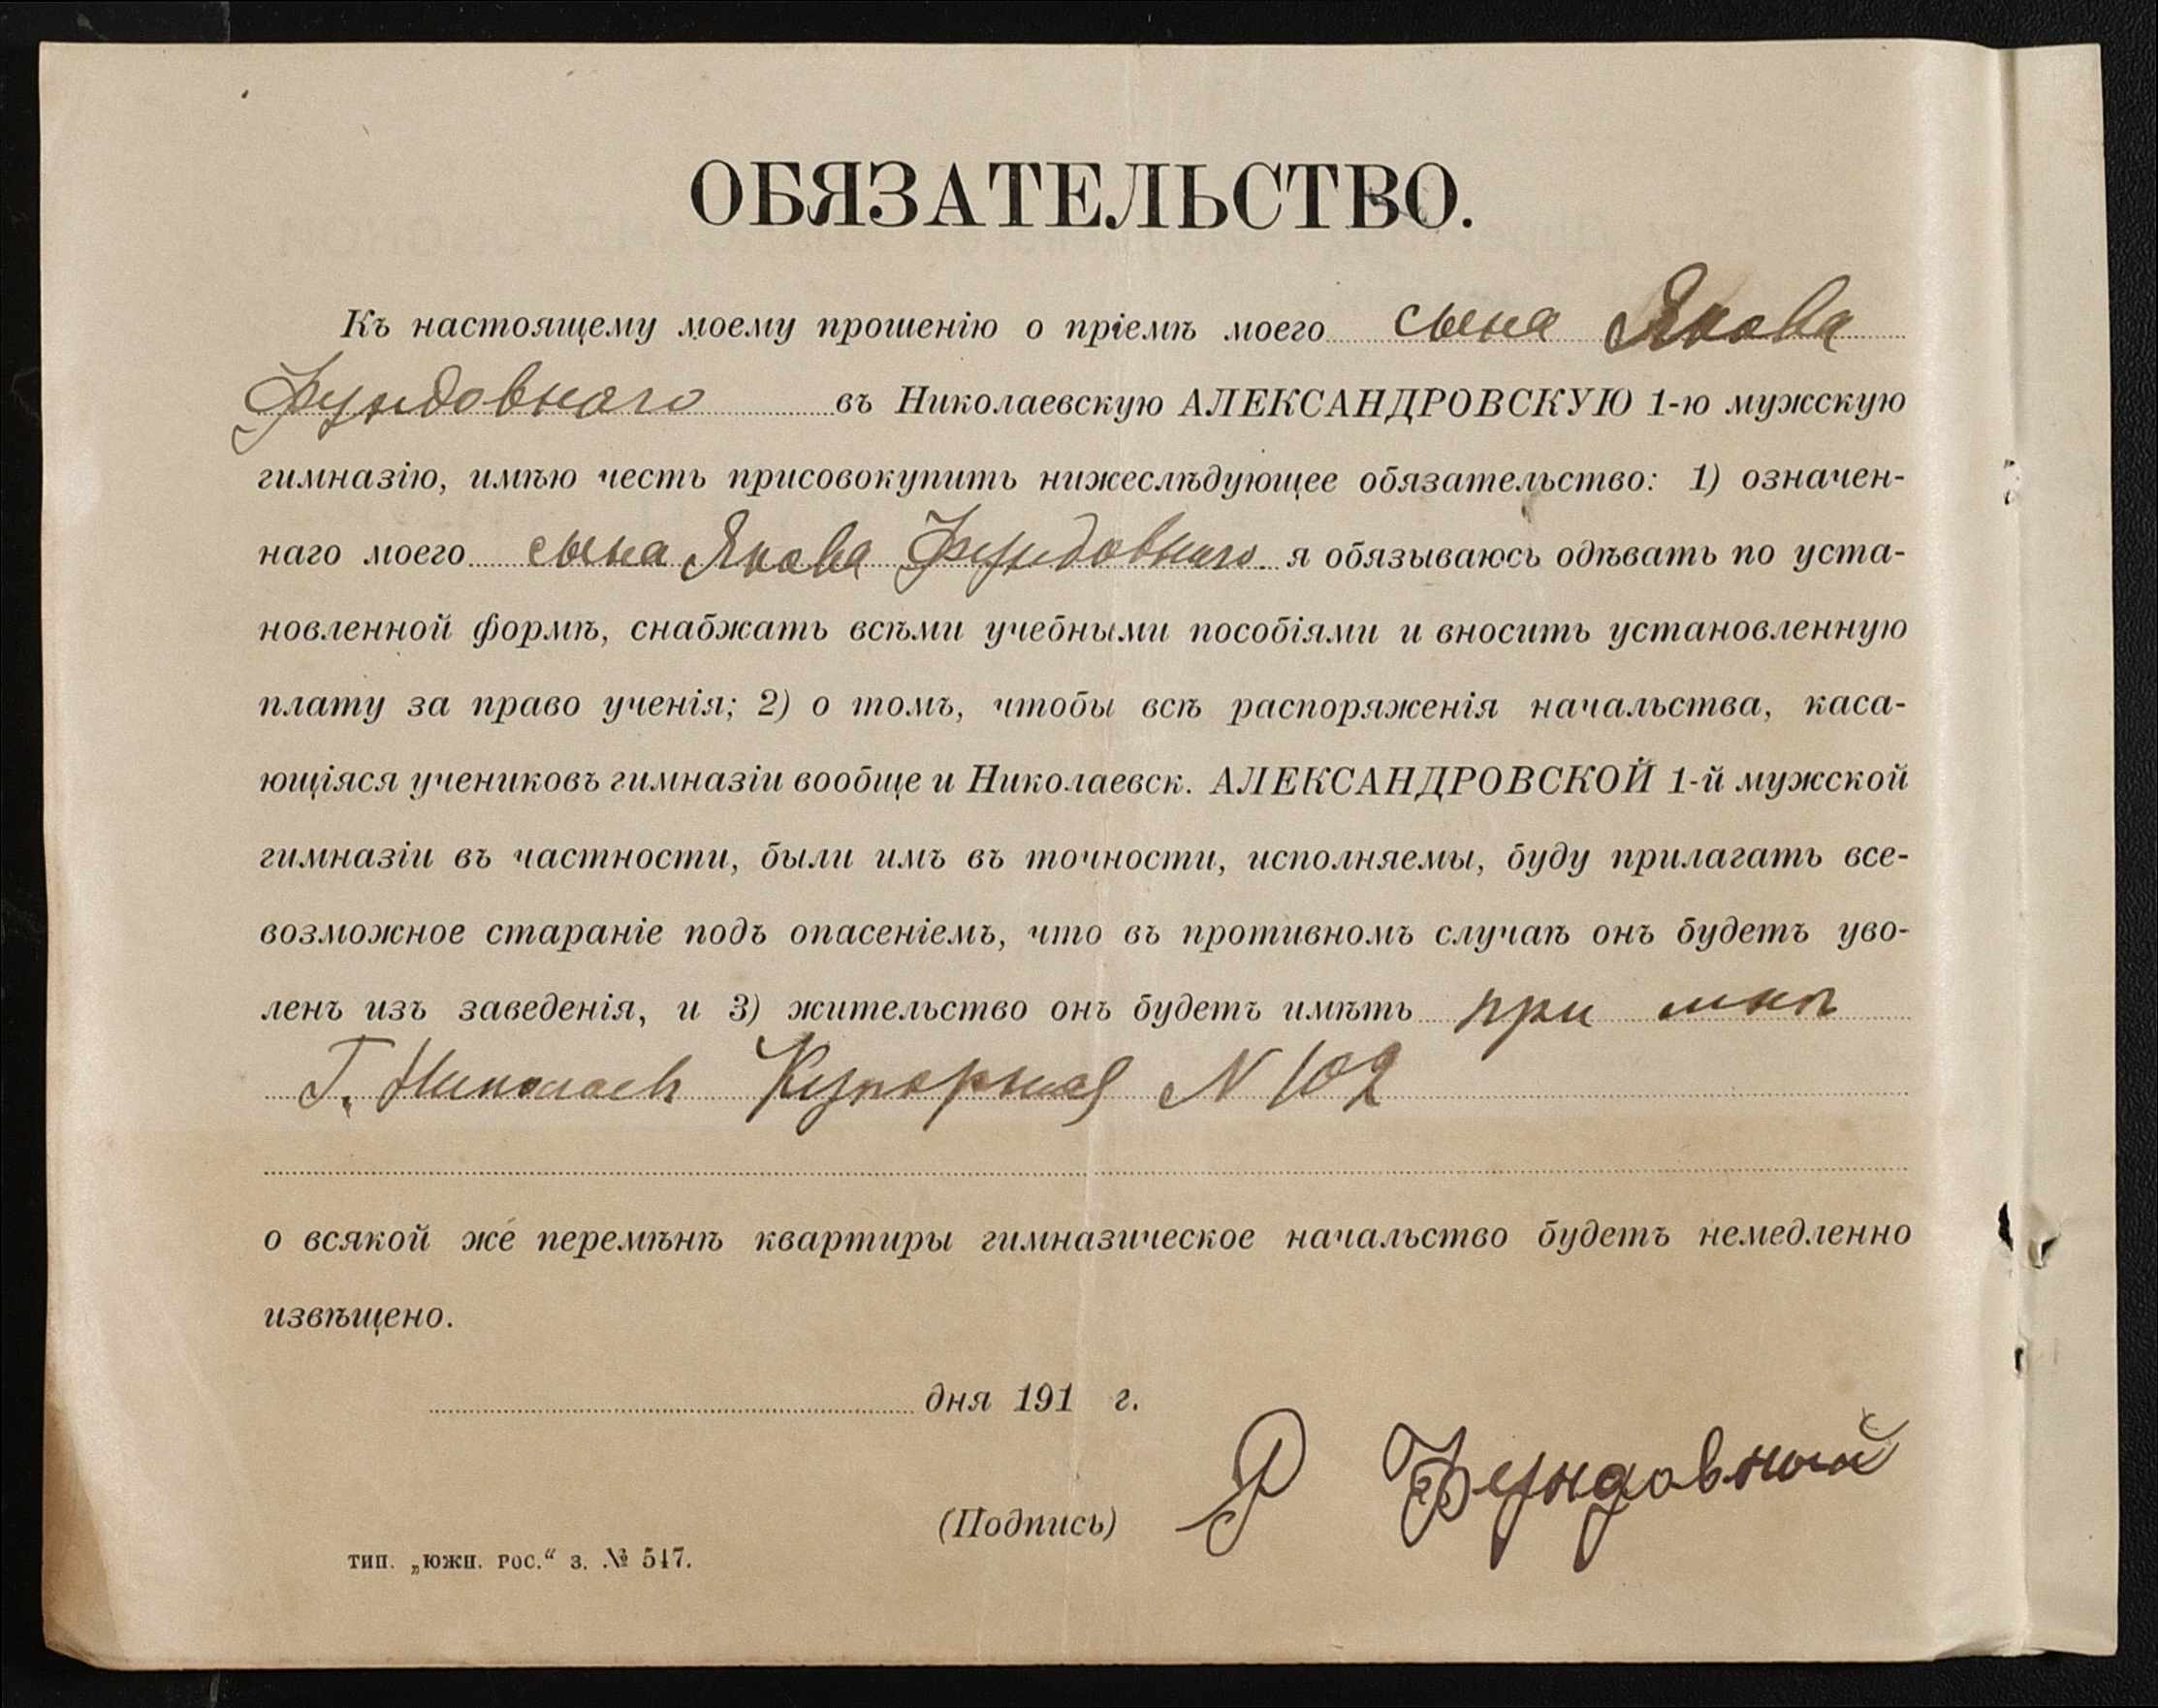 ОБЯЗАТЕЛЬСТВО.
Къ настоящему моему прошенію о пріемѣ моего сына Якова
Фундовнаго въ Николаевскую АЛЕКСАНДРОВСКУЮ 1-ю мужскую
гимназію, имѣю честь присовокупить нижеслѣдующее обязательство: 1) означен-
наго моего сына Якова Фундовнаго я обязываюсь одѣвать по уста-
новленной формѣ, снабжать всѣми учебными пособіями и вносить установленную
плату за право ученія; 2) о томъ, чтобы всѣ распоряженія начальства, каса-
ющіяся учениковъ гимназіи вообще и Николаевск. АЛЕКСАНДРОВСКОЙ 1-й мужской
гимназіи въ частности, были имъ въ точности, исполняемы, буду прилагать все-
возможное стараніе подъ опасеніемъ, что въ противномъ случаѣ онъ будетъ уво-
ленъ изъ заведенія, и 3) жительство онъ будетъ имѣть при мнѣ
Г. Николаевъ Купорная N 102
о всякой же перемѣнѣ квартиры гимназическое начальство будетъ немедленно
извѣщено.
дня 191 г.
(Подпись) Я Фундовный
тип. „южн. рос.“ з. № 547.